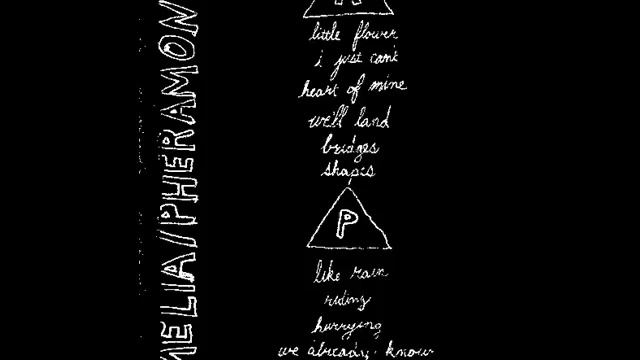 MELIA/PHERAMON
little flower
i just can't
heart of mine
we'll land
bridges
shapes
P
like rain
riding
hurrying
we already know